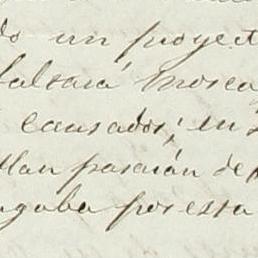 do un proyect
falsará mosca
causados; en
llan pasarán de
ngaba por esta